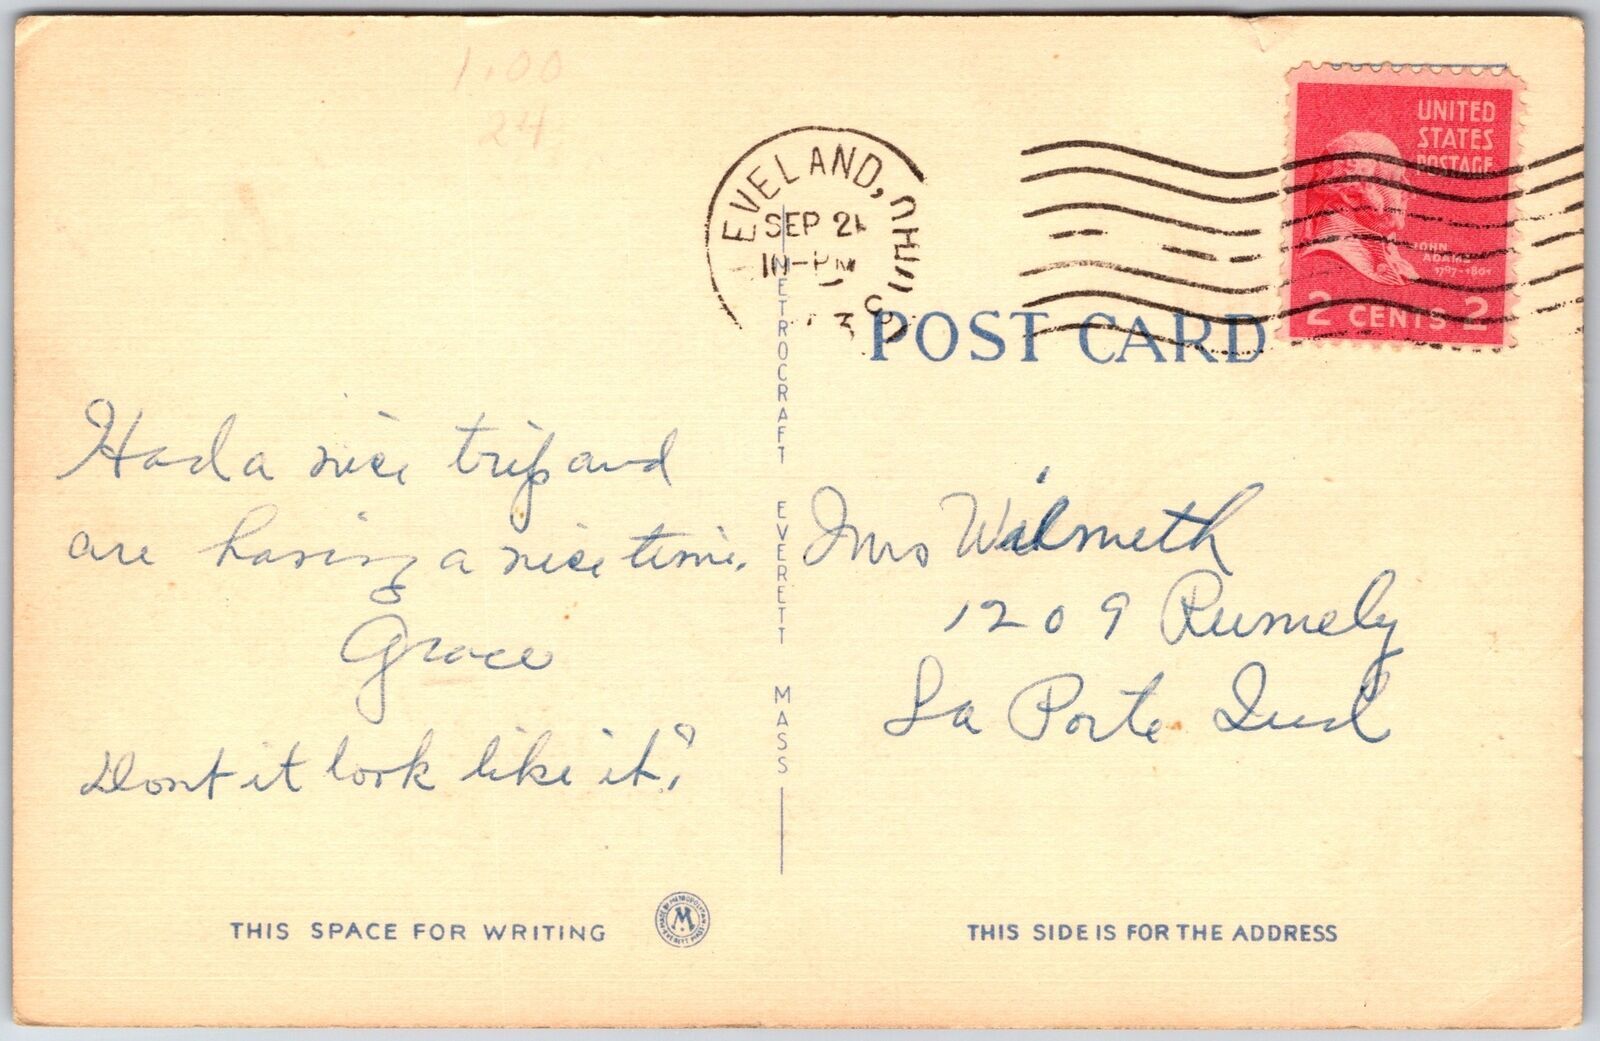 1.00
24
EVELAND, OHIO
SEP 21
PM
POST CARD
UNITED
STATES
POSTAGE
JOHN
ADAMS
1797-1801
2 CENTS 2
METROCRAFT EVERETT MASS
Had a nice trip and
are having a nice time.
Grace
Dont it look like it?
Mrs Wilmeth
1209 Rumely
La Porte Ind
THIS SPACE FOR WRITING
M
THIS SIDE IS FOR THE ADDRESS